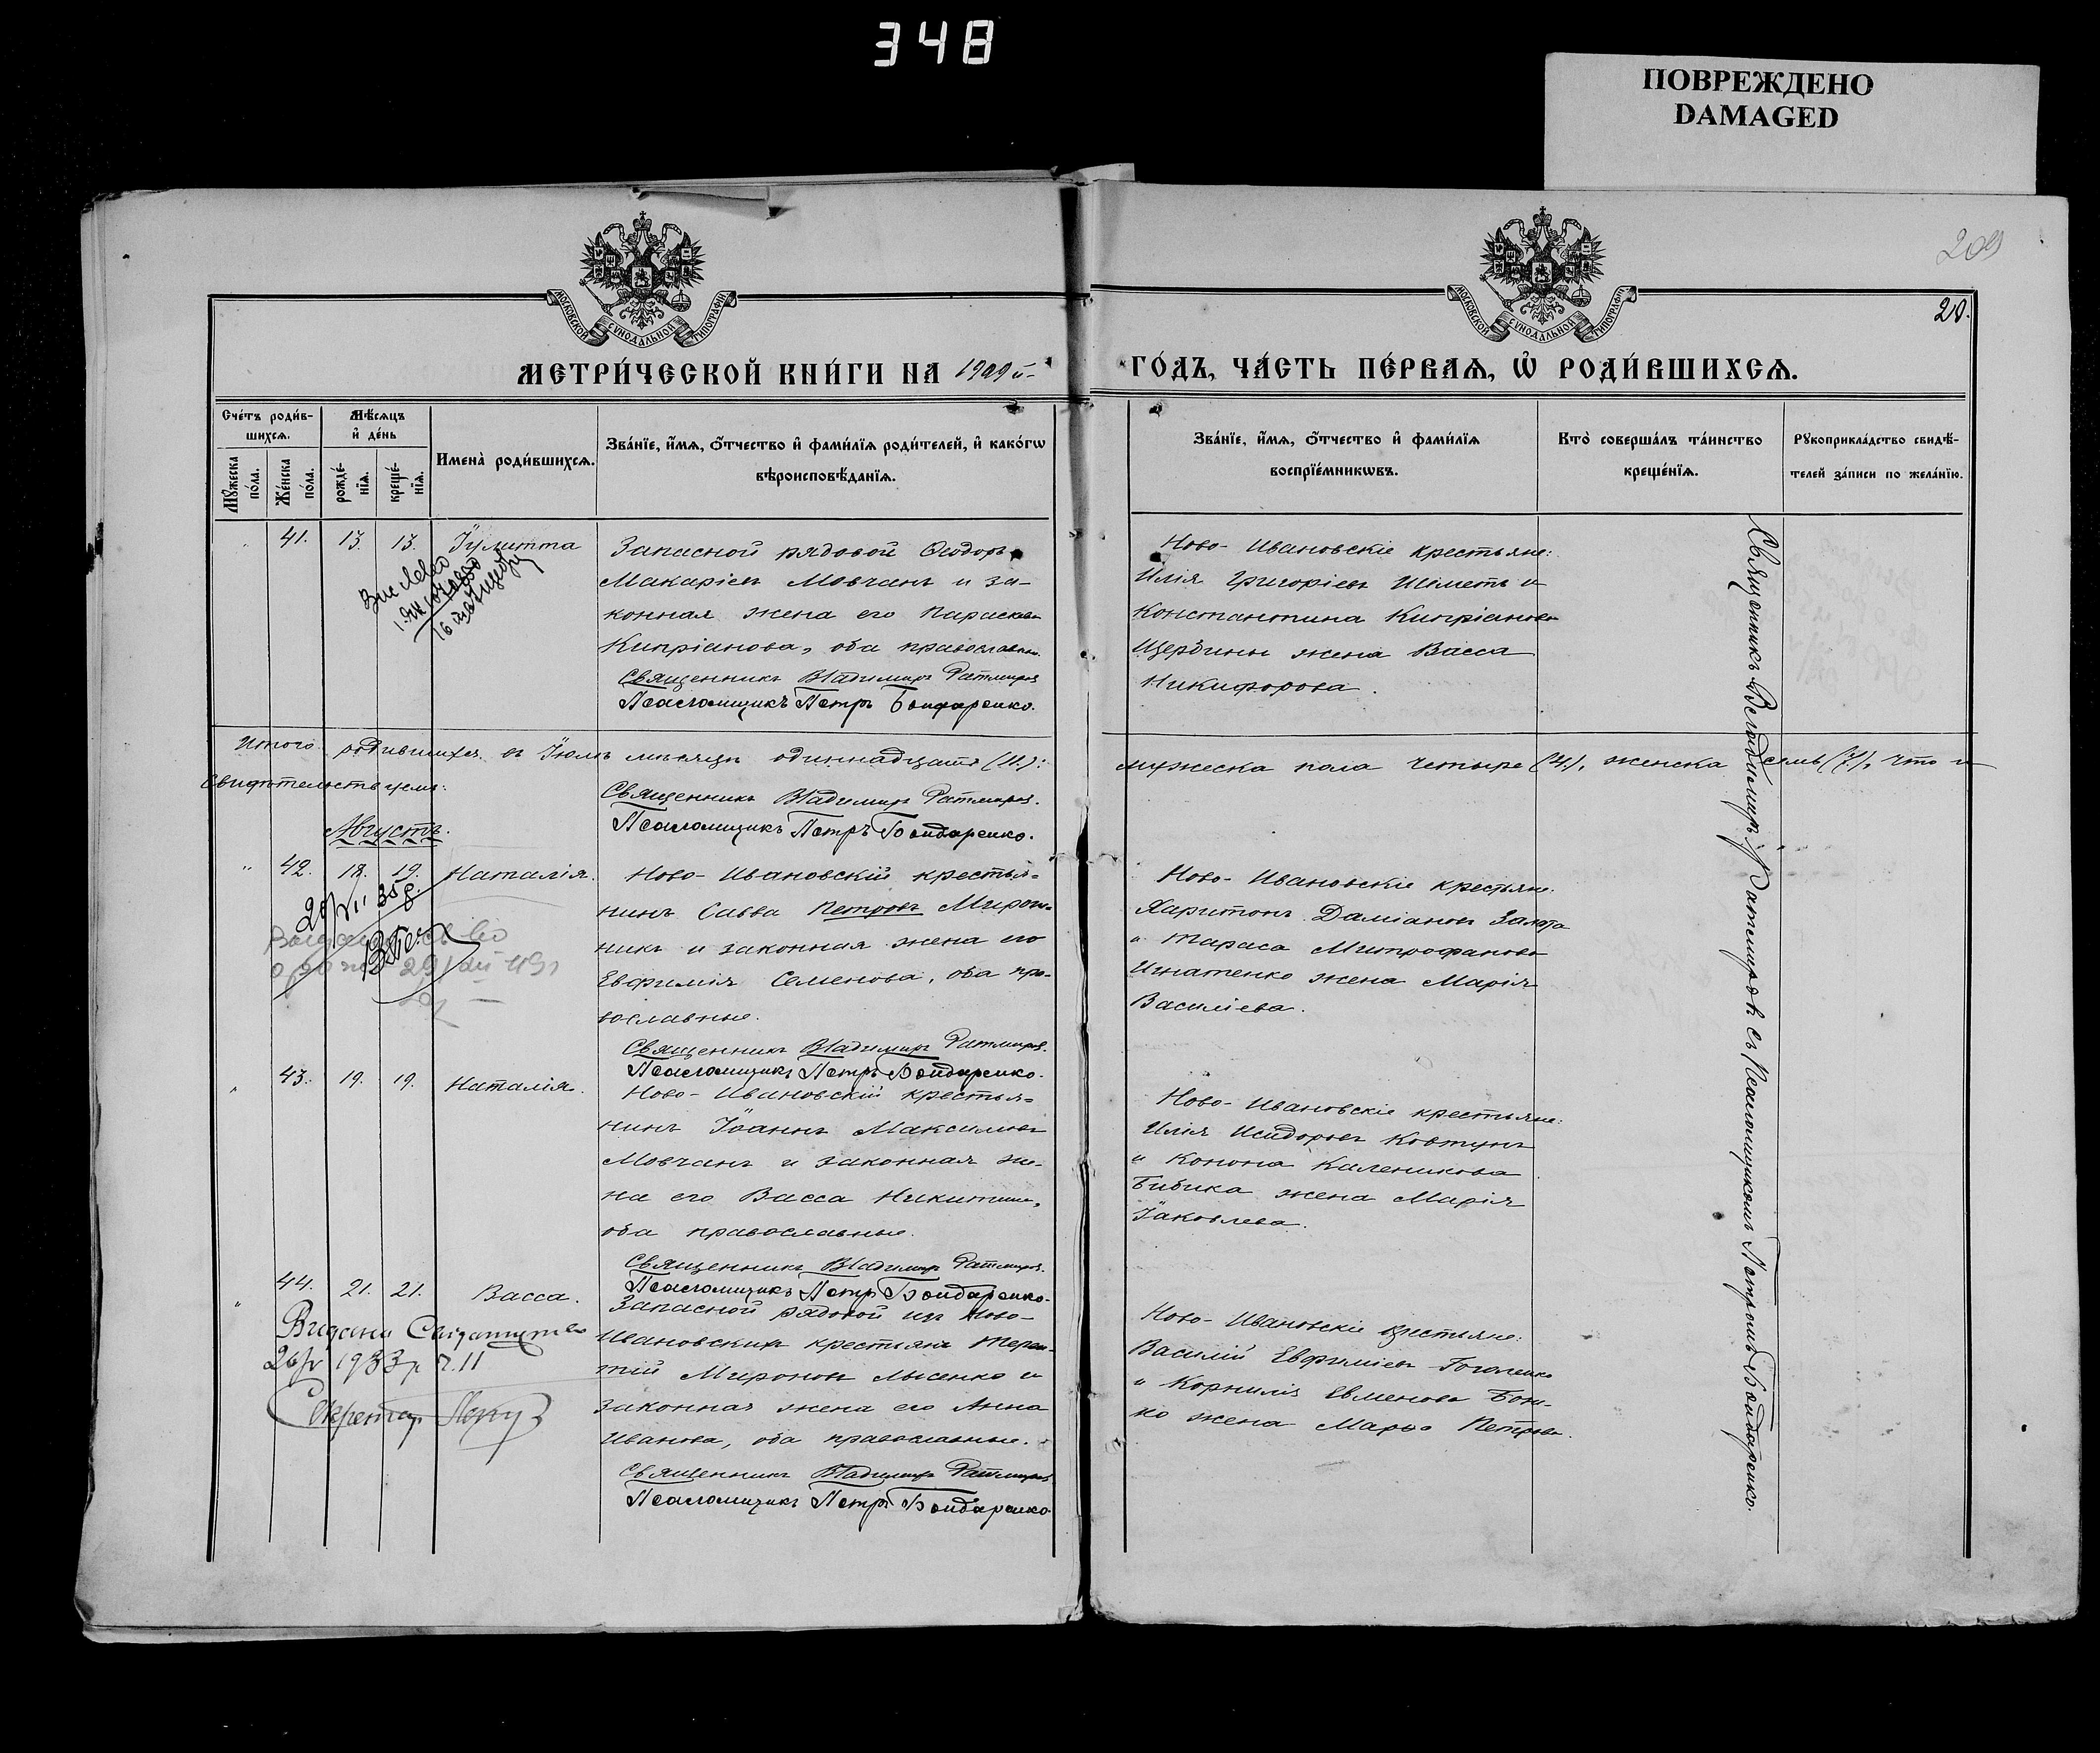 348
ПОВРЕЖДЕНО
DAMAGED
209
20.
МОСКОВСКОЙ СѴНОДАЛЬНОЙ ТИПОГРАФІИ
МОСКОВСКОЙ СѴНОДАЛЬНОЙ ТИПОГРАФІИ
МЕТРИ́ЧЕСКОЙ КНИ́ГИ НА 1909й- ГО́ДЪ, ЧА́СТЬ ПЕ́РВАѦ, Ѡ҆ РОДИ́ВШИХСѦ.
Сче́тъ роди́в-
шихсѧ.
Мꙋ́жеска по́ла.
Же́нска по́ла.
Мѣ́сѧцъ
и҆ де́нь
рожде́-
нїѧ.
креще́-
нїѧ.
Имена̀ роди́вшихсѧ.
Зва́нїе, и҆́мѧ, ѻ҆́тчество и҆ фами́лїѧ роди́телей, и҆ како́гѡ
вѣроисповѣ́данїѧ.
Зва́нїе, и҆́мѧ, ѻ҆́тчество и҆ фами́лїѧ
воспрїе́мникѡвъ.
Кто̀ соверша́лъ та́инство
креще́нїѧ.
Рꙋкоприкла́дство свидѣ́-
телей за́писи по жела́нїю.
41. 13. 13. Іулитта
Запасной рядовой Ѳеодоръ
Макаріевъ Мовчанъ и за-
конная жена его Параскева
Кипріанова, оба православные.
Священникъ Владимиръ Ратмировъ
Псаломщикъ Петръ Бондаренко.
Ново-Ивановскіе крестьяне:
Илія Григоріевъ Шеметъ и
Константина Кипріанова
Щербины жена Васса
Никифорова.
Итого родившихся въ Іюлѣ мѣсяцѣ одиннадцать (11.): мужеска пола четыре (4.), женска семь (7), что и
свидѣтельствуемъ:
Священникъ Владимиръ Ратмировъ.
Псаломщикъ Петръ Бондаренко.
Августъ.
" 42. 18. 19. Наталія.
Ново-Ивановскій крестья-
нинъ Савва Петровъ Мирош-
никъ и законная жена его
Евфимія Семенова, оба пра-
вославные.
Священникъ Владимиръ Ратмировъ.
Псаломщикъ Петръ Бондаренко.
Ново-Ивановскіе крестьяне:
Харитонъ Даміановъ
и Тараса Митрофанова
Игнатенко жена Марія
Василіева.
" 43. 19. 19. Наталія.
Ново-Ивановскій крестья-
нинъ Іоаннъ Максимовъ
Мовчанъ и законная же-
на его Васса Никитина,
оба православные.
Священникъ Владимиръ Ратмировъ.
Псаломщикъ Петръ Бондаренко.
Ново-Ивановскіе крестьяне:
Илія Исидоровъ Ковтунъ
и Конона Каленикова
Бибика жена Марія
Іаковлева.
" 44. 21. 21. Васса.
Запасной рядовой изъ Ново-
Ивановскихъ крестьянъ Терен-
тій Мироновъ Лысенко и
законная жена его Анна
Иванова, оба православные.
Священникъ Владимиръ Ратмировъ
Псаломщикъ Петръ Бондаренко.
Ново-Ивановскіе крестьяне:
Василій Евфиміевъ Гоголенко
и Корнилія Евменова Бон-
ко жена Марія Петрова.
Видани
1933р ч.11
Секретар
Священникъ Владимиръ Ратмировъ съ Псаломщикомъ Петромъ Бондаренко.